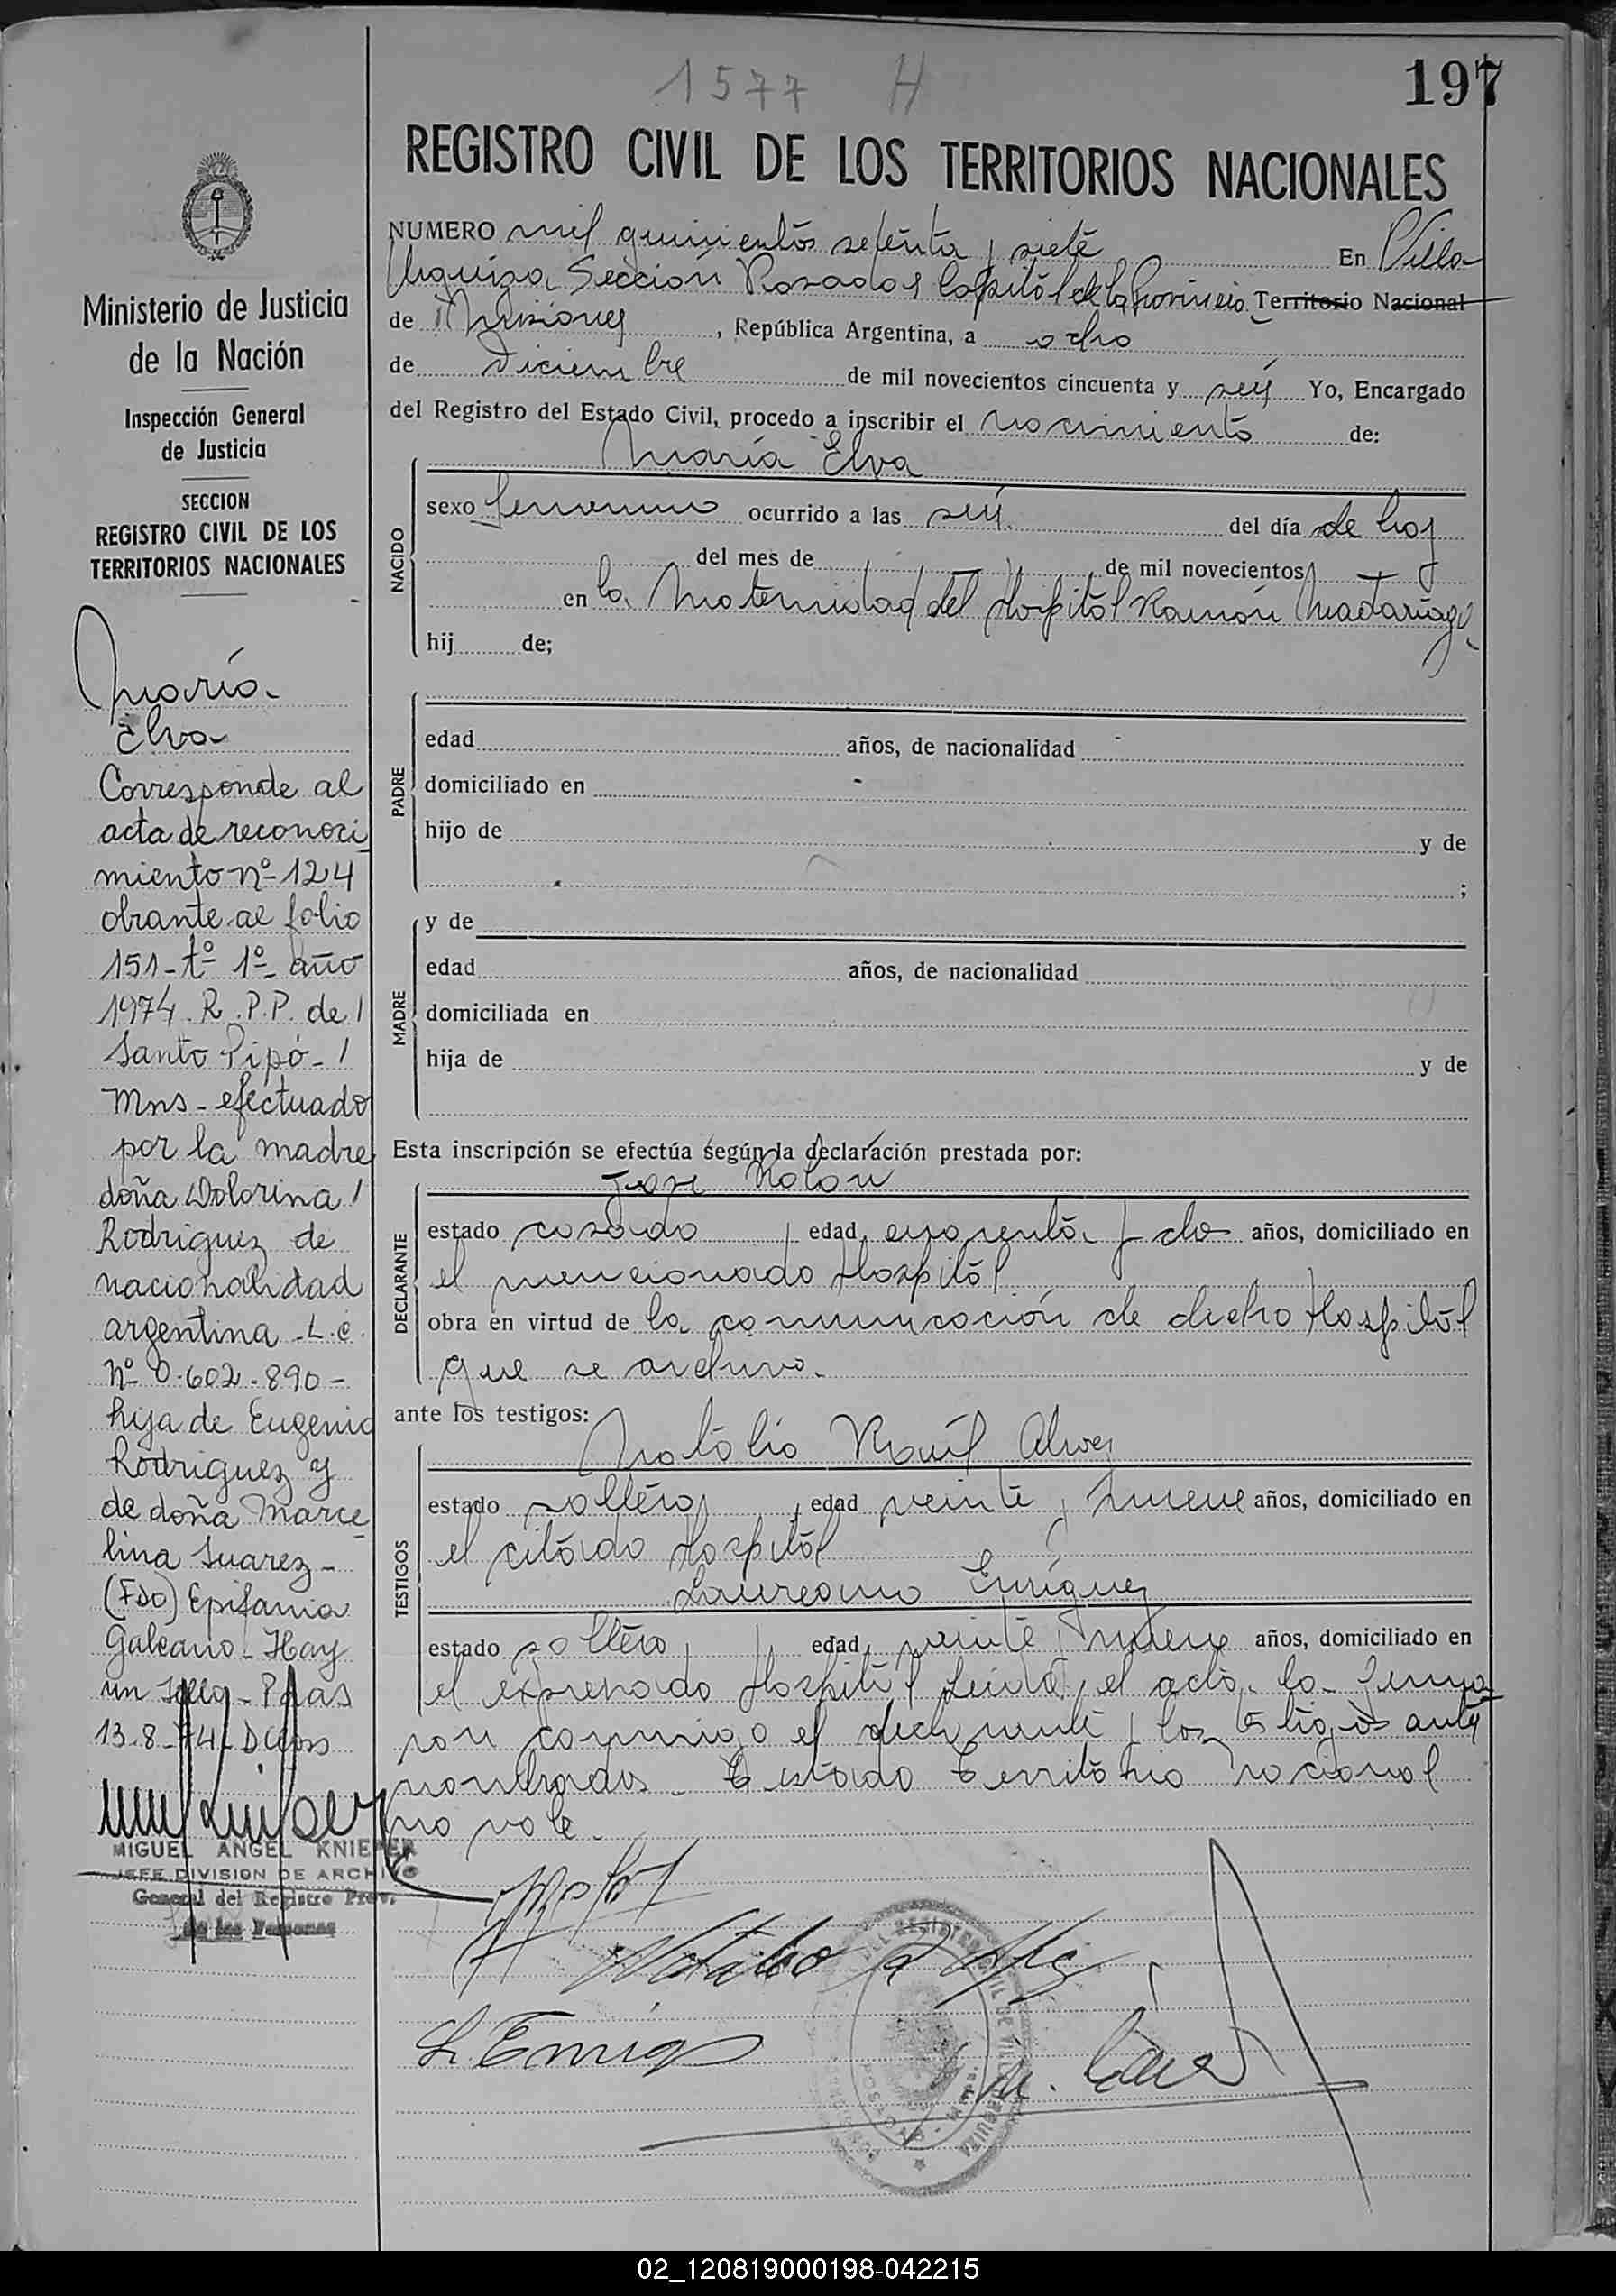 1577 H
197
REGISTRO CIVIL DE LOS TERRITORIOS NACIONALES
NUMERO mil quinientos setenta y siete En Villa
Urquiza Sección Posadas Capital de la Provincia Territorio Nacional
de Misiones, República Argentina, a ocho
de Diciembre de mil novecientos cincuenta y seis Yo, Encargado
del Registro del Estado Civil, procedo a inscribir el nacimiento de:
María Elva
NACIDO
sexo femenino ocurrido a las seis del día de hoy
del mes de de mil novecientos
en la Maternidad del Hospital Ramón Madariaga
hij de;
PADRE
edad años, de nacionalidad
domiciliado en
hijo de y de
;
MADRE
y de
edad años, de nacionalidad
domiciliada en
hija de y de
Esta inscripción se efectúa según la declaración prestada por:
José Rolón
DECLARANTE
estado casado, edad cuarenta y dos años, domiciliado en
el mencionado Hospital
obra en virtud de la comunicación de dicho Hospital
que se archiva.
ante los testigos:
Natalio Raúl Alvez
TESTIGOS
estado soltero, edad veinte y nueve años, domiciliado en
el citado Hospital
Laureano Enríquez
estado soltero, edad veinte y nueve años, domiciliado en
el expresado Hospital Leída el acta la firma
ron conmigo el declarante y los testigos ante
nombrados. Testado Territorio Nacional
no vale.
L. Enriq
Ministerio de Justicia
de la Nación
Inspección General
de Justicia
SECCION
REGISTRO CIVIL DE LOS
TERRITORIOS NACIONALES
María
Elva
Corresponde al
acta de reconoci
miento nº 124
obrante al folio
151-tº 1º año
1974. R.P.P. de /
Santo Pipó- /
Mns-efectuado
por la madre
doña Dolorina /
Rodriguez de
nacionalidad
argentina L.c.
Nº 0.602.890-
hija de Eugenio
Rodriguez y
de doña Marce
lina Suarez-
(Fdo) Epifania
Galeano-Hay
un Sello-Pdas
13-8-74-
MIGUEL ANGEL KNIEPER
JEFE DIVISION DE ARCHIVO
General del Registro Prov.
de las Personas
02_120819000198-042215